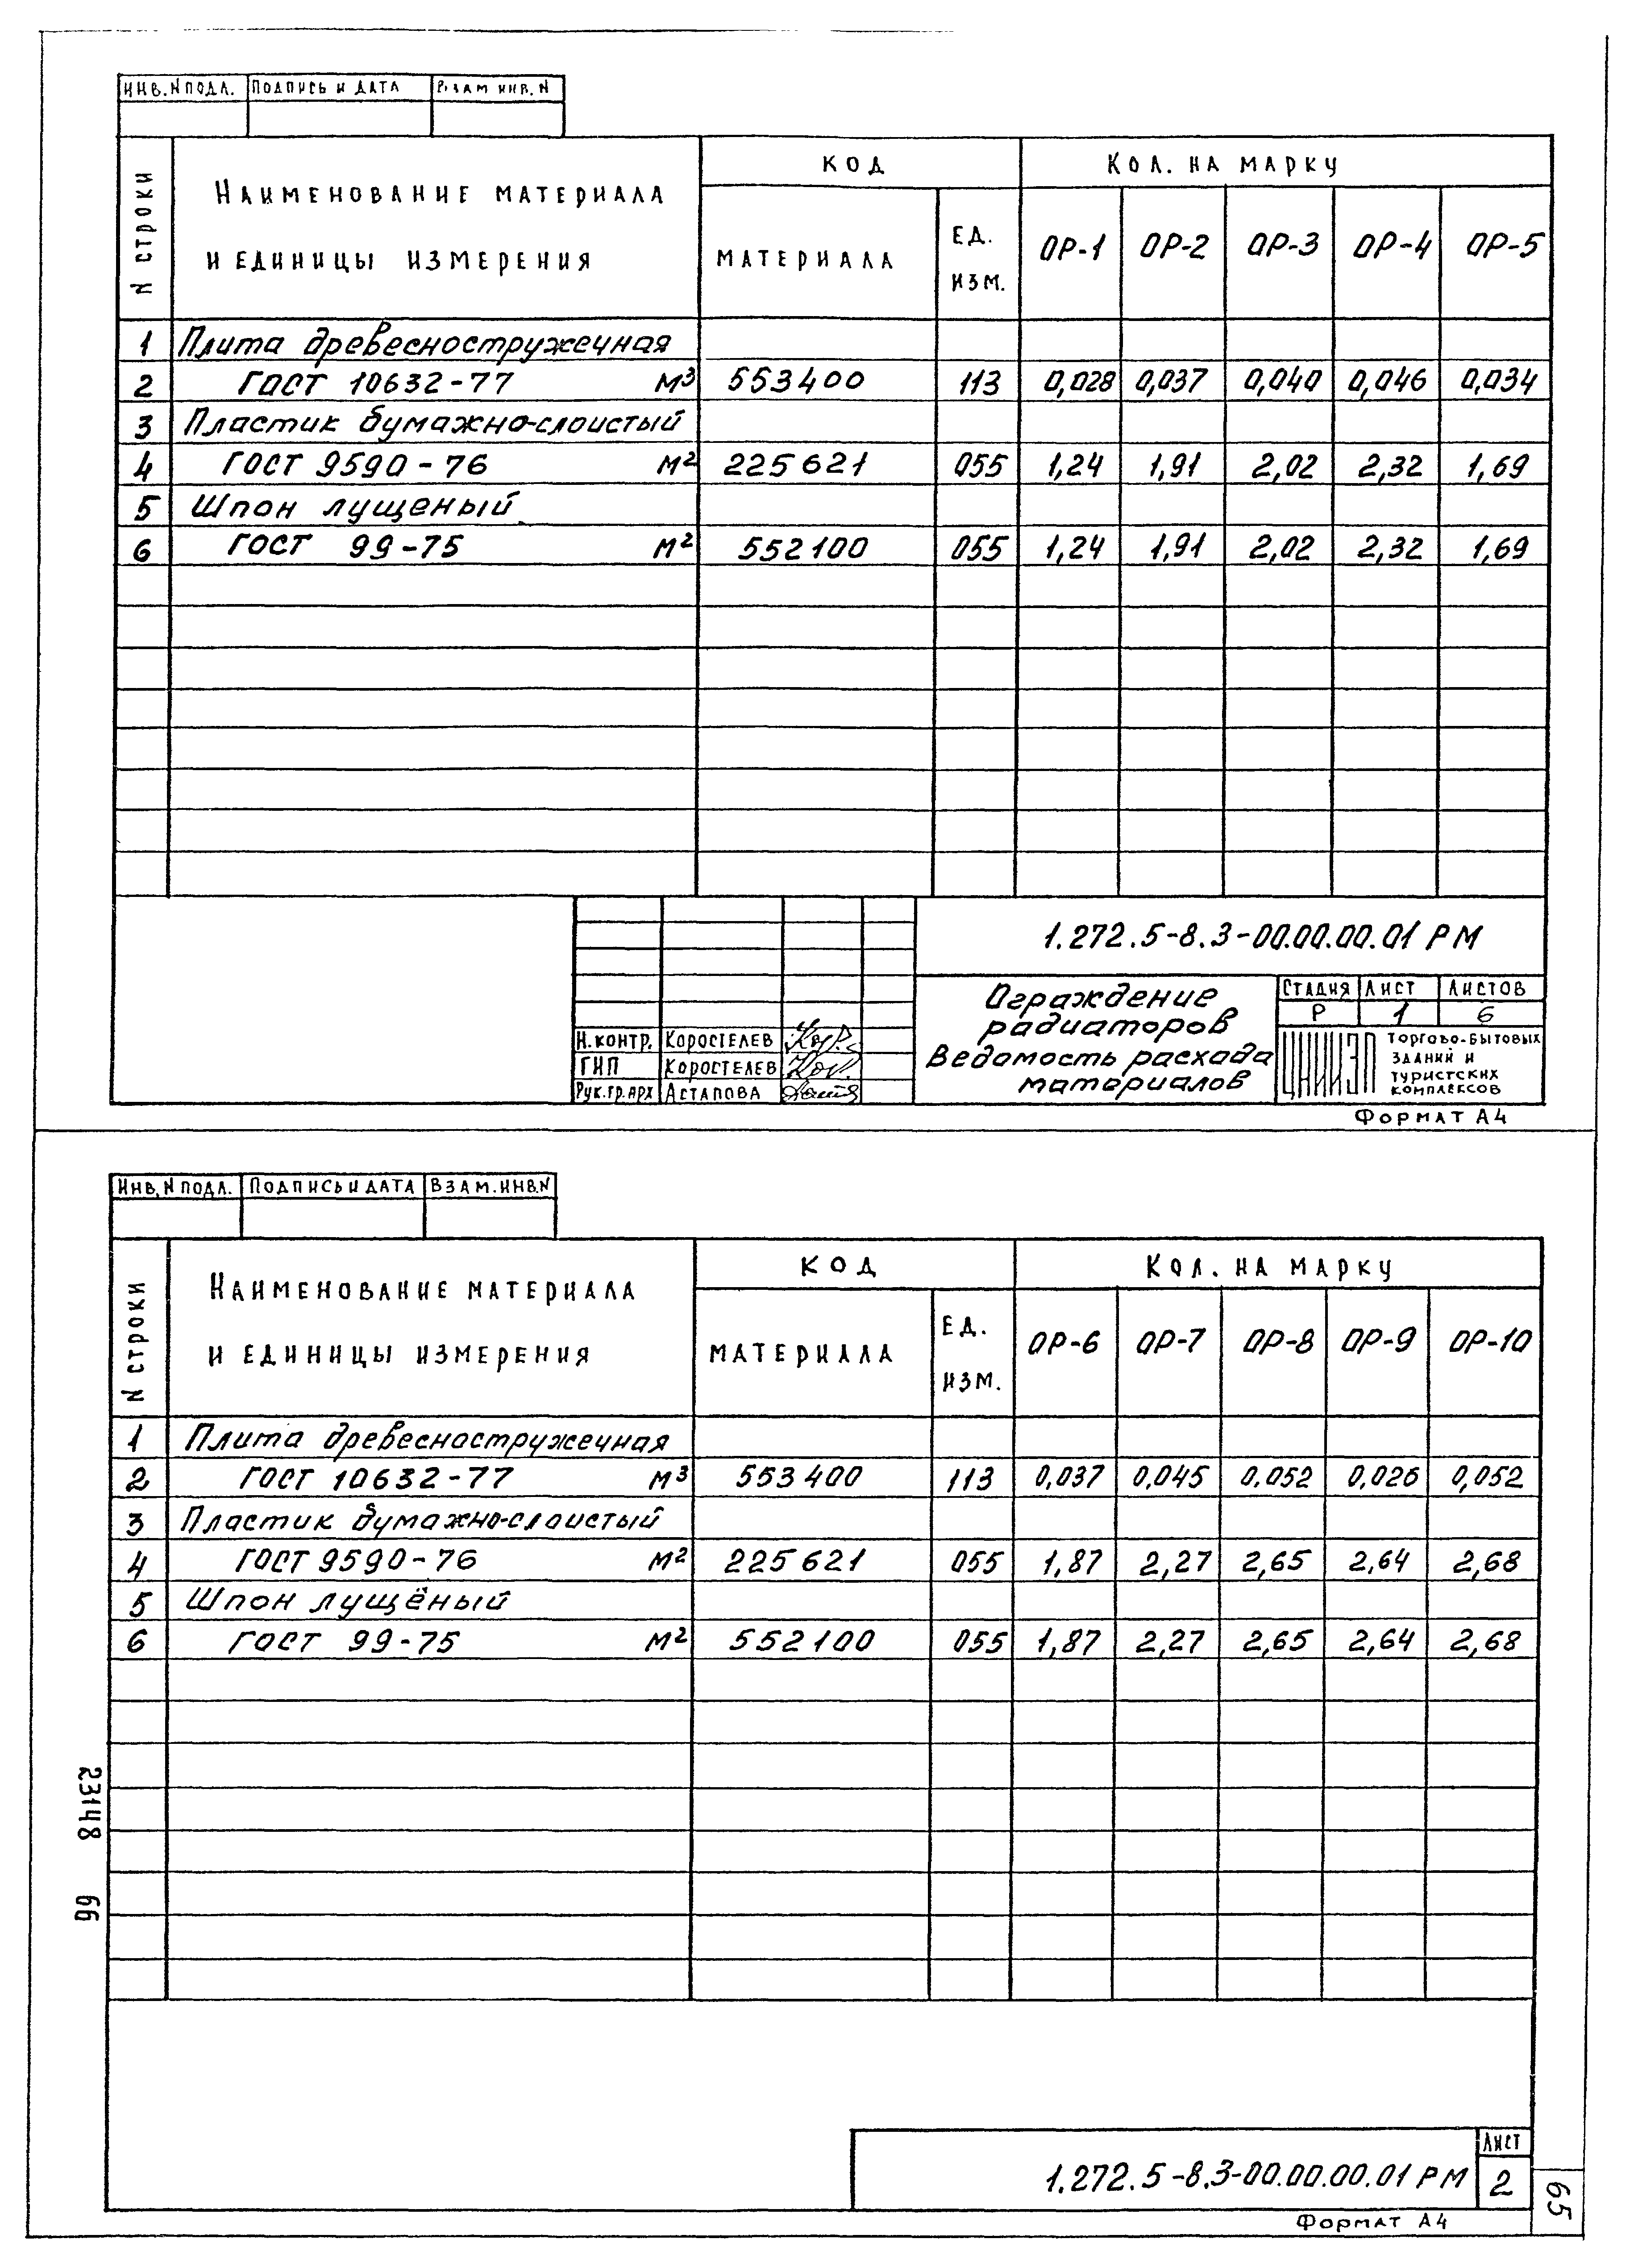 Инв. N подл. Подпись и дата Взам инв. N
N строки Наименование материала и единицы измерения КОД Кол. на марку
материала ед. изм. ОР-1 ОР-2 ОР-3 ОР-4 ОР-5
1 Плита древесностружечная
2 ГОСТ 10632-77 м³ 553400 113 0,028 0,037 0,040 0,046 0,034
3 Пластик бумажно-слоистый
4 ГОСТ 9590-76 м² 225621 055 1,24 1,91 2,02 2,32 1,69
5 Шпон лущеный
6 ГОСТ 99-75 м² 552100 055 1,24 1,91 2,02 2,32 1,69
1.272.5-8.3-00.00.00.01 РМ
Ограждение
радиаторов
Ведомость расхода
материалов
Стадия Лист Листов
Р 1 6
Н.контр. Коростелев
ГИП Коростелев
Рук.гр.арх Астапова
ЦНИИЭП торгово-бытовых
зданий и
туристских
комплексов
Формат А4
Инв. N подл. Подпись и дата Взам. инв. N
N строки Наименование материала и единицы измерения КОД Кол. на марку
материала ед. изм. ОР-6 ОР-7 ОР-8 ОР-9 ОР-10
1 Плита древесностружечная
2 ГОСТ 10632-77 м³ 553400 113 0,037 0,045 0,052 0,026 0,052
3 Пластик бумажно-слоистый
4 ГОСТ 9590-76 м² 225621 055 1,87 2,27 2,65 2,64 2,68
5 Шпон лущёный
6 ГОСТ 99-75 м² 552100 055 1,87 2,27 2,65 2,64 2,68
23148 66
1.272.5-8.3-00.00.00.01 РМ
Лист
2
65
Формат А4